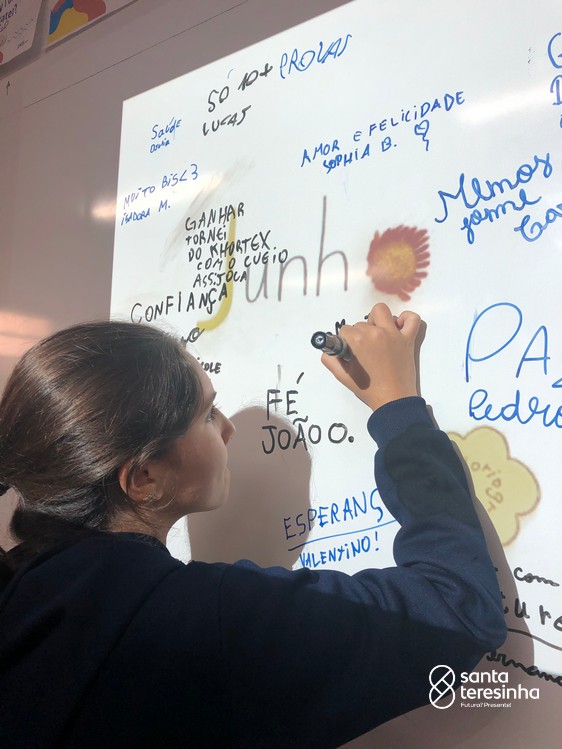 SÓ 10+ PROVAS
LUCAS
Saúde
MUITO BIS<3
ISADORA M.
AMOR E FELICIDADE
SOPHIA B.
GANHAR
TORNEI
DO KHORTEX
COM O CUEIO
ASSJOLA
Junho
CONFIANÇA
Menos
fome
PA
Pedro
FÉ
JOÃO O.
ESPERANÇ
VALENTINO!
com
santa
teresinha
Futuro? Presente!